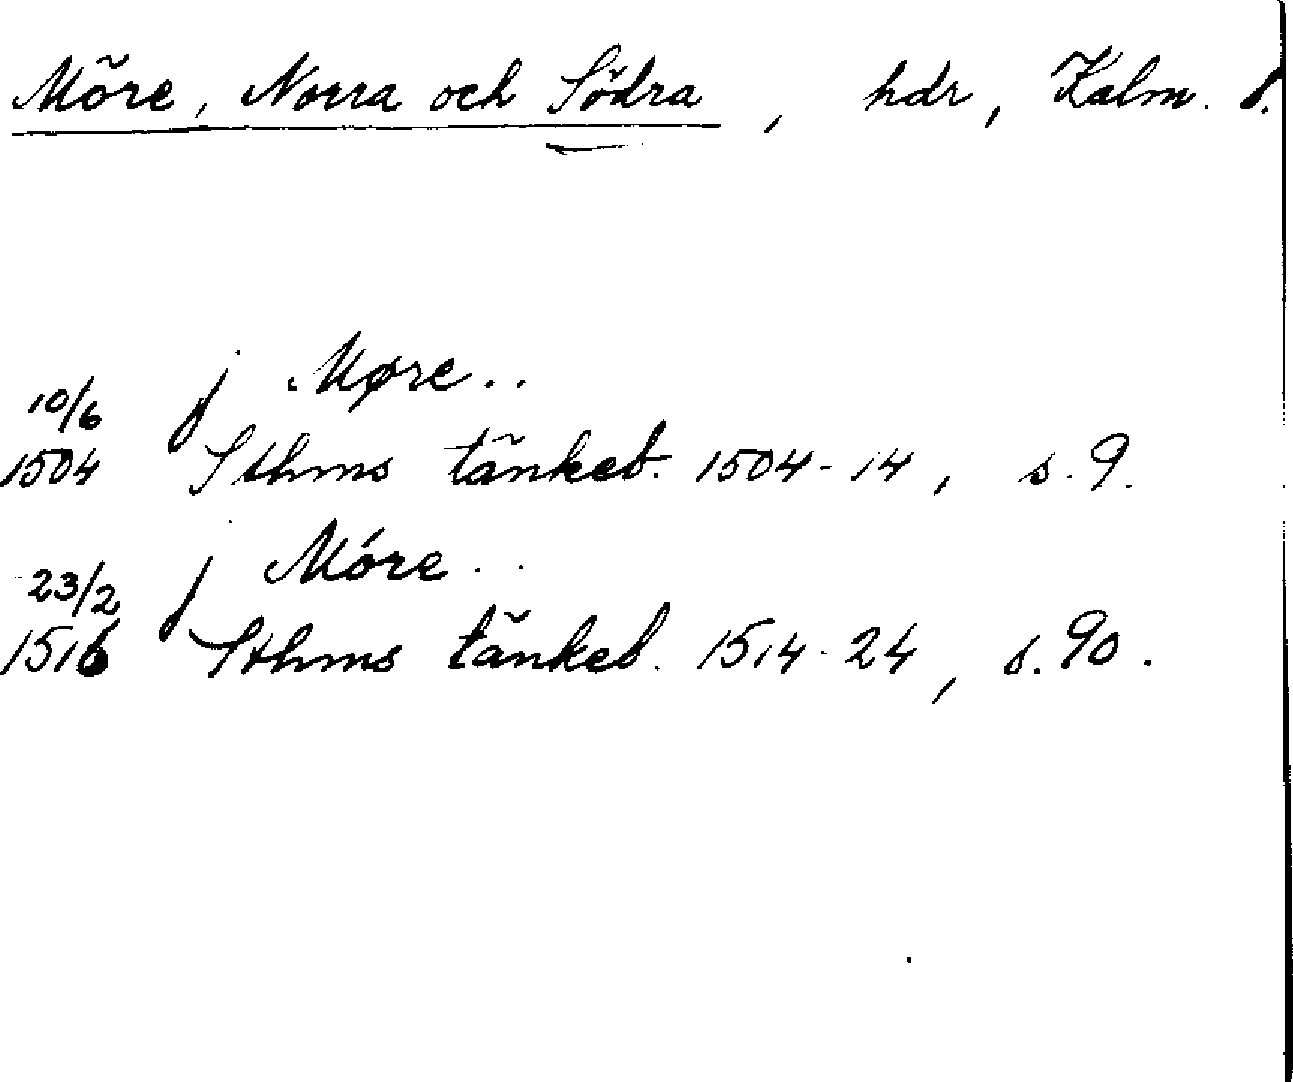 Möre, Norra och Södra, hdr, Kalm. l.
j Møre..
10/6
1504 Sthms tänkeb. 1504-14, s. 9.
j Móre..
23/2
1516 Sthms tänkeb. 1514-24, s. 90.